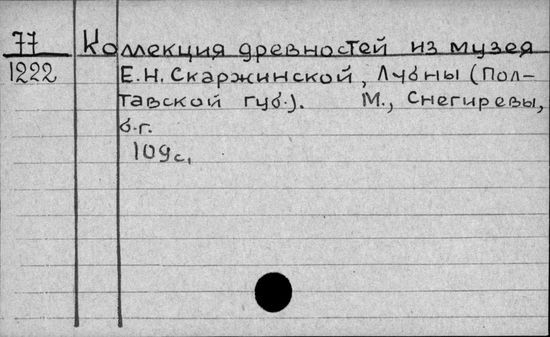 77 Коллекция древностей из музея
1222 Е.Н. Скаржинской, Лубны (Пол-
тавской губ.). М., Снегиревы,
б.г.
109 с.